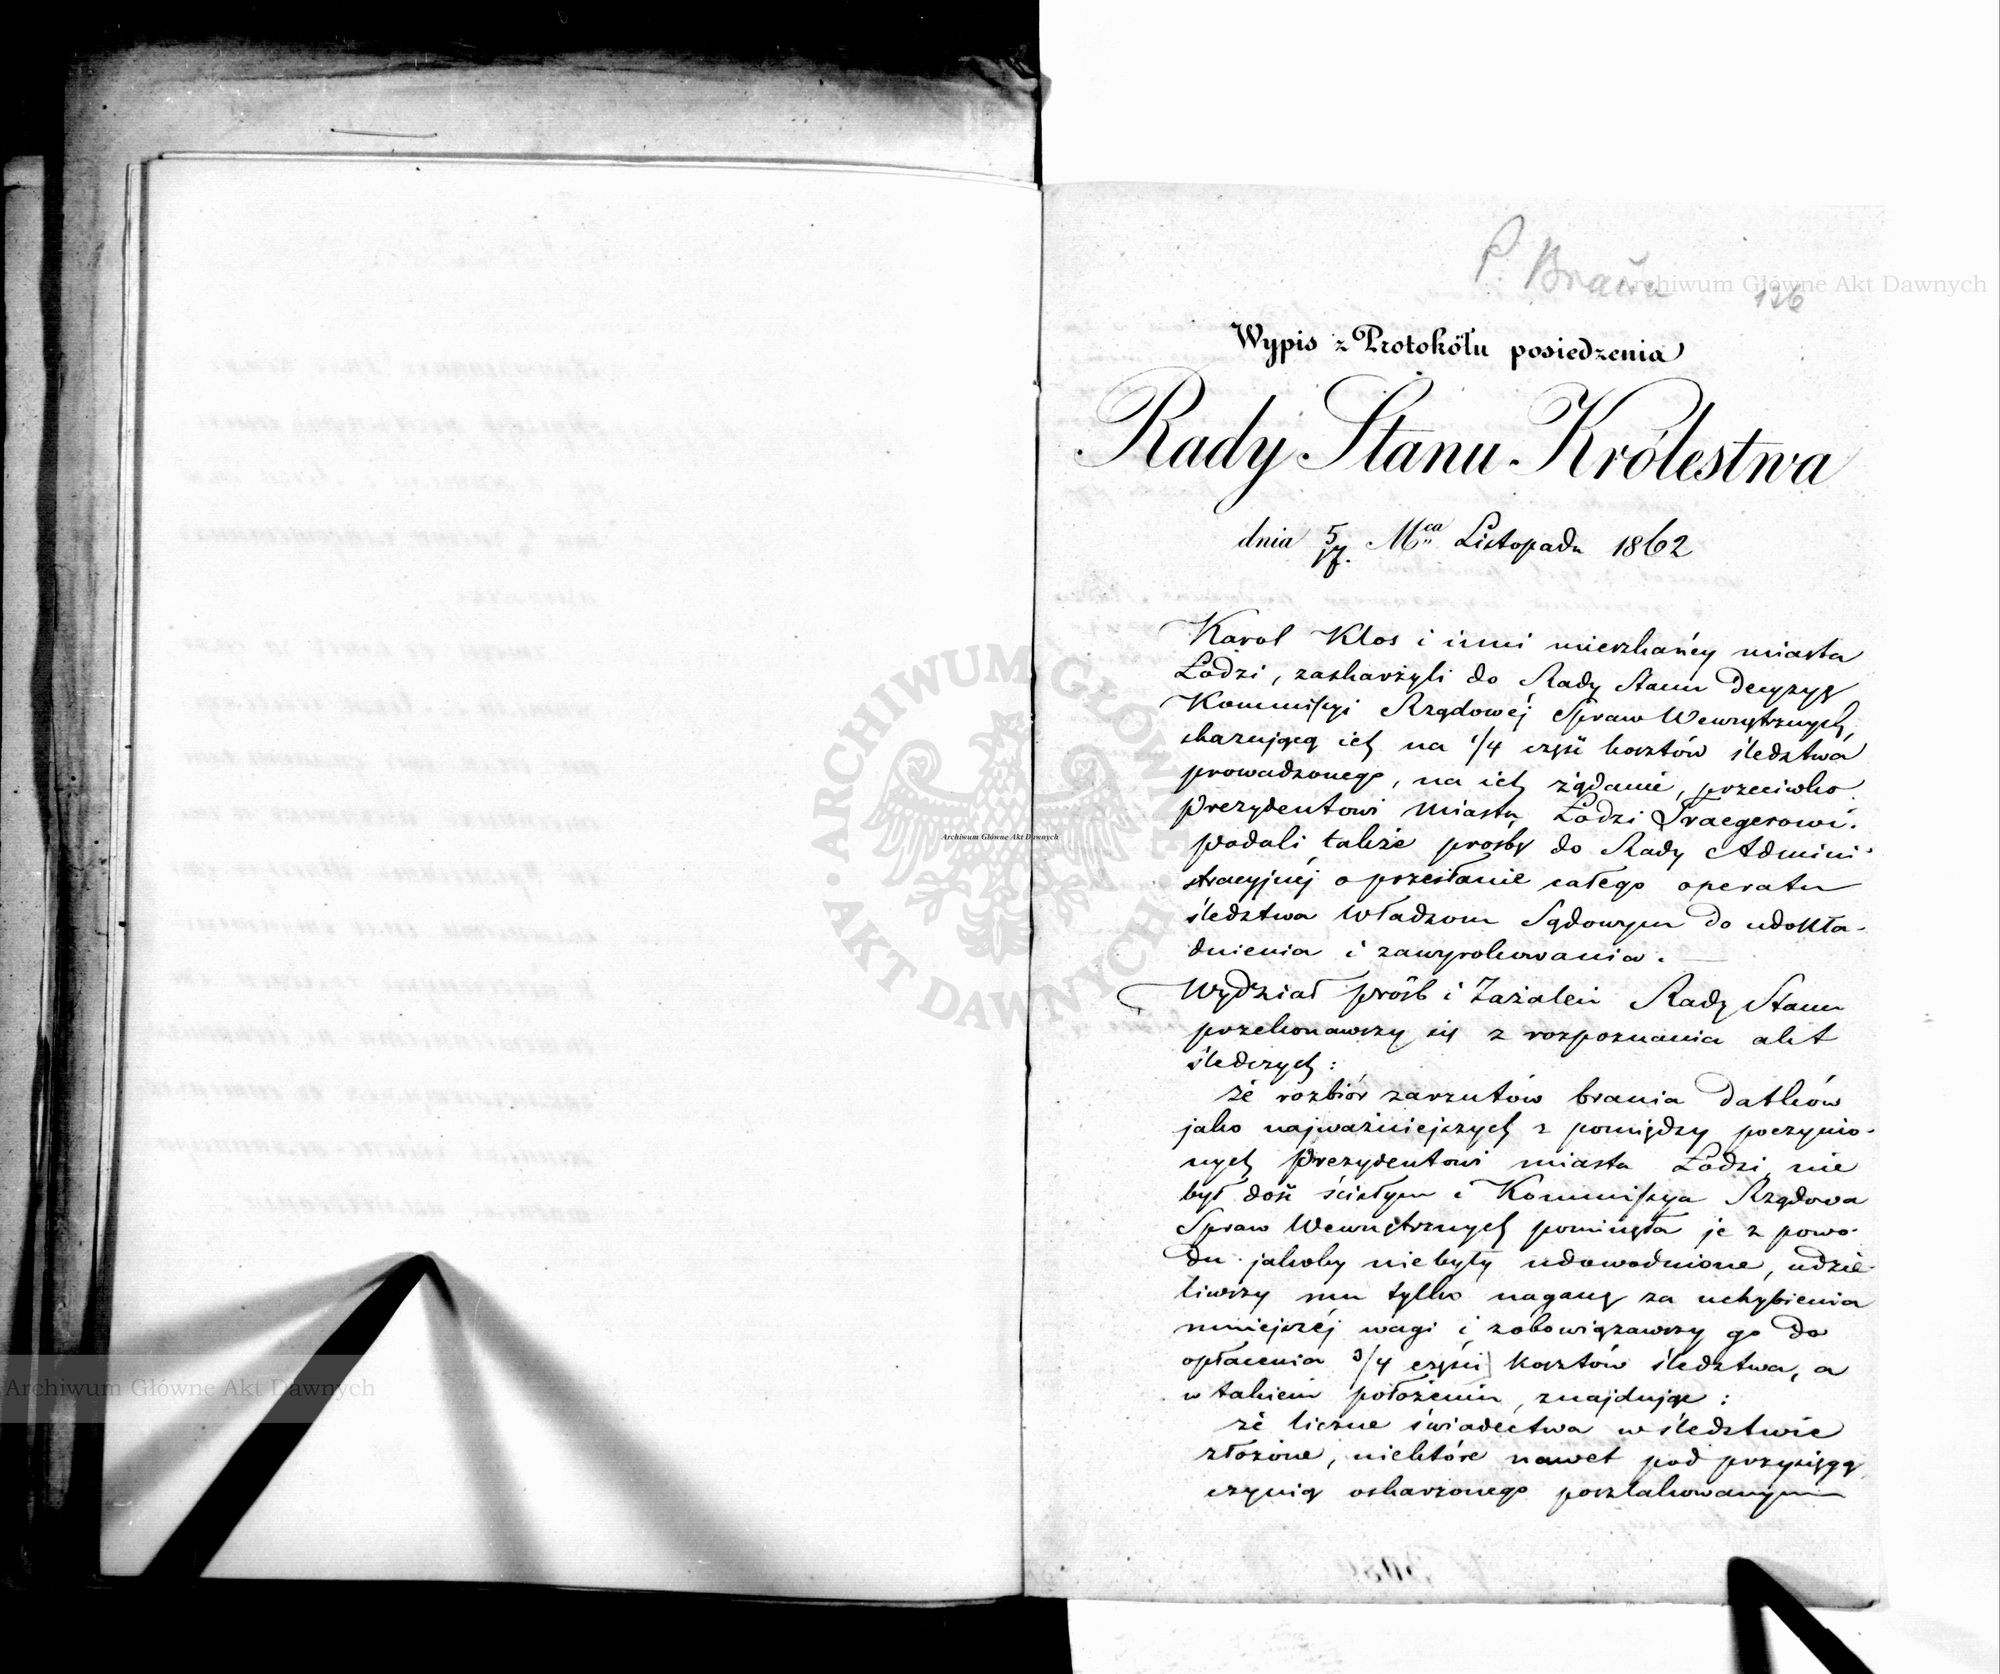 P. Brauna
126
Archiwum Główne Akt Dawnych
Wypis z Protokółu posiedzenia
Rady Stanu Królestwa
dnia 5/17. Mca Listopada 1862
Karol Klos i inni mieszkańcy miasta
Łodzi, zaskarżyli do Rady Stanu Decyzyę
Kommissyi Rządowéj Spraw Wewnętrznych,
skazującą ich na 1/4 część kosztów śledztwa
prowadzonego, na ich żądanie, przeciwko
Prezydentowi Miasta Łodzi Traegerowi.
podali także prośbę do Rady Admini-
stracyjnéj o przesłanie całego operatu
śledztwa Władzom Sądowym do udokła-
dnienia i zawyrokowania.
Wydział próśb i Zażaleń Rady Stanu
przekonawszy się z rozpoznania akt
śledczych:
że rozbiór zarzutów brania Datków
jako najważniejszych z pomiędzy poczynio-
nych Prezydentowi miasta Łodzi nie
był dość ścisłym i Kommissya Rządowa
Spraw Wewnętrznych pominęła je z powo-
du jakoby niebyły udowodnione, udzie-
liwszy mu tylko naganę za uchybienia
mniejszéj wagi i zobowiązawszy go do
opłacenia 3/4 części kosztów śledztwa, a
w takiem położeniu, znajdując:
że liczne świadectwa w śledztwie
złożone, niektóre nawet pod przysięgą
czynią oskarżonego poszlakowanym
ARCHIWUM GŁÓWNE
AKT DAWNYCH
Archiwum Główne Akt Dawnych
Archiwum Główne Akt Dawnych